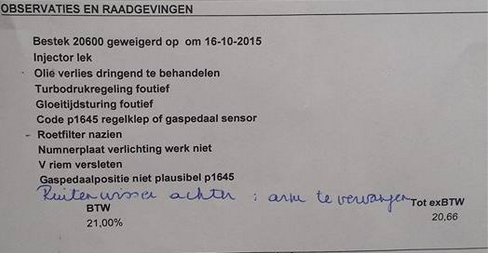 OBSERVATIES EN RAADGEVINGEN
Bestek 20600 geweigerd op om 16-10-2015
Injector lek
Olie verlies dringend te behandelen
Turbodrukregeling foutief
Gloeitijdsturing foutief
Code p1645 regelklep of gaspedaal sensor
- Roetfilter nazien
Numnerplaat verlichting werk niet
V riem versleten
Gaspedaalpositie niet plausibel p1645
Ruitenwisser achter : arm te vervangen
Tot exBTW
BTW
20,66
21,00%